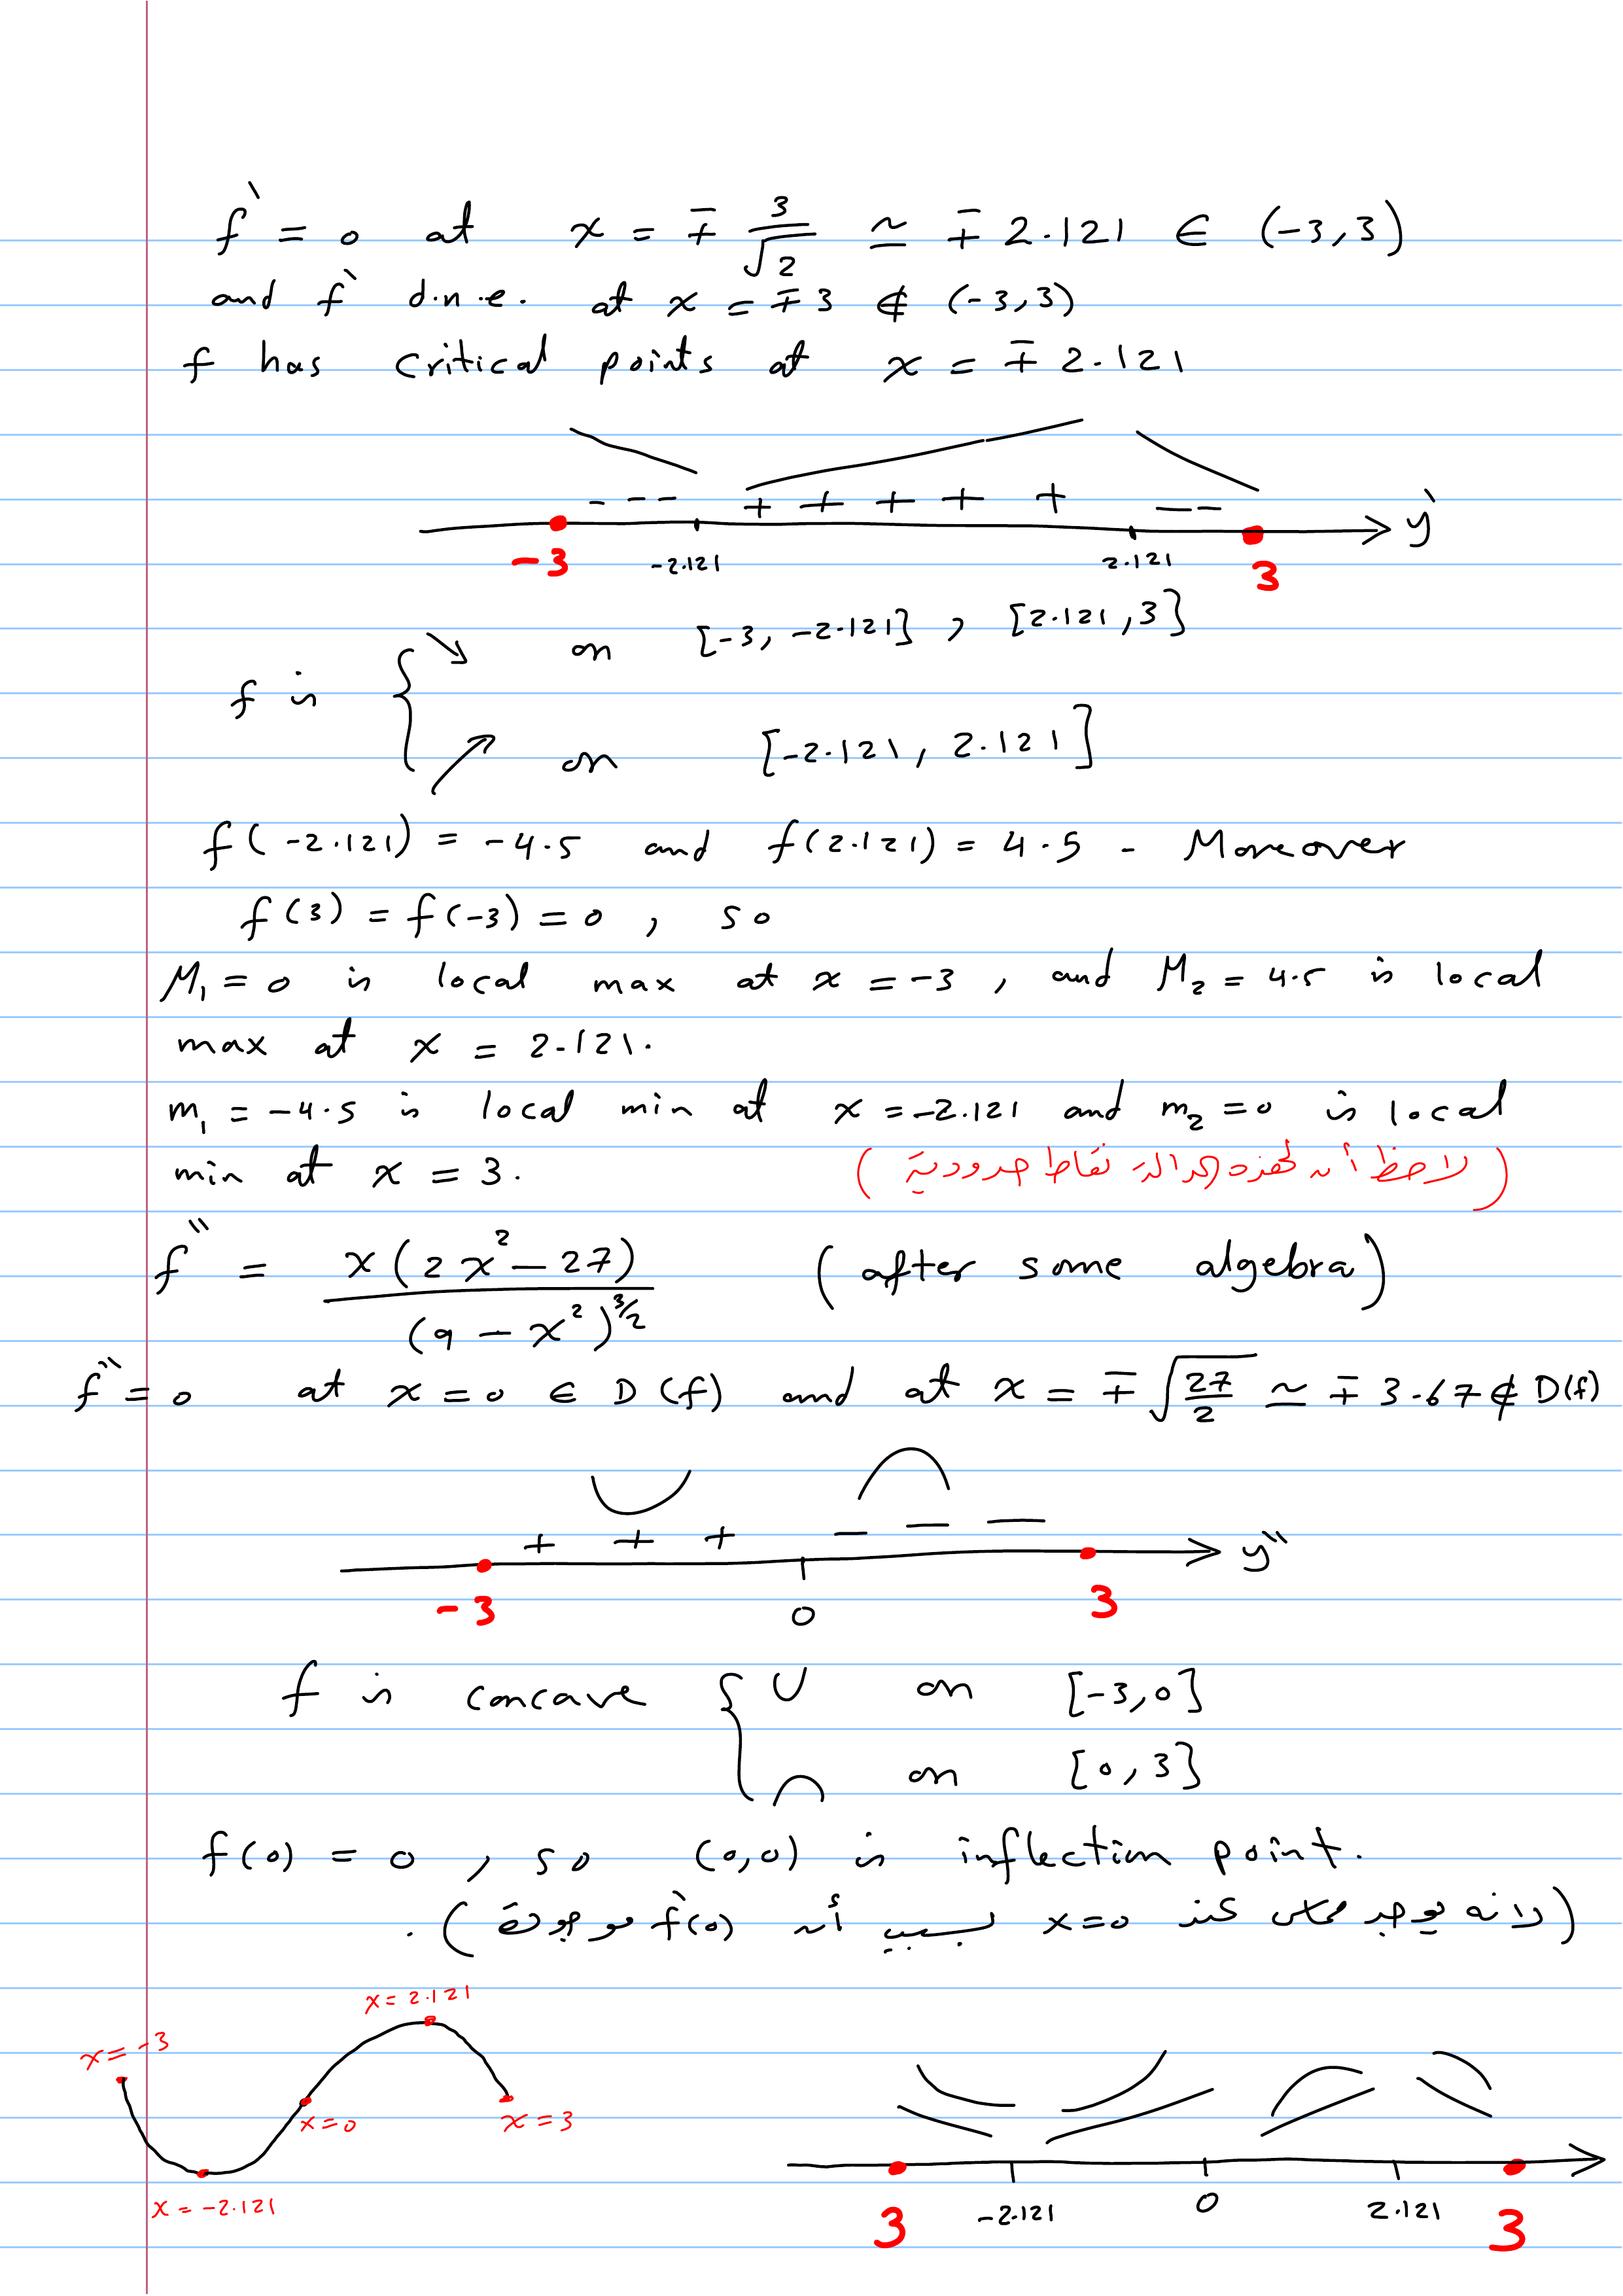 f` = 0 at x = ∓ 3/√2 ≃ ∓ 2.121 ∈ (-3,3)
and f` d.n.e. at x = ∓3 ∉ (-3,3)
f has critical points at x = ∓ 2.121
- - - + + + + + - - y`
-3 -2.121 2.121 3
f is { ↘ on [-3, -2.121] , [2.121, 3]
↗ on [-2.121, 2.121]
f(-2.121) = -4.5 and f(2.121) = 4.5 - Moreover
f(3) = f(-3) = 0 , so
M₁ = 0 is local max at x = -3 , and M₂ = 4.5 is local
max at x = 2.121.
m₁ = -4.5 is local min at x = -2.121 and m₂ = 0 is local
min at x = 3. (لاحظ أن لهذه الدالة نقاط حدودية)
f`` = x(2x² - 27) / (9 - x²)^3/2 (after some algebra)
f`` = 0 at x = 0 ∈ D(f) and at x = ∓ √27/2 ≃ ∓ 3.67 ∉ D(f)
+ + + - - - y``
-3 0 3
f is concave { ∪ on [-3,0]
∩ on [0,3]
f(0) = 0 , so (0,0) is inflection point.
(لانه يوجد مماس عند x=0 بسبب أن f`(0) موجودة).
x = 2.121
x = -3
x = 0
x = 3
x = -2.121
3 -2.121 0 2.121 3